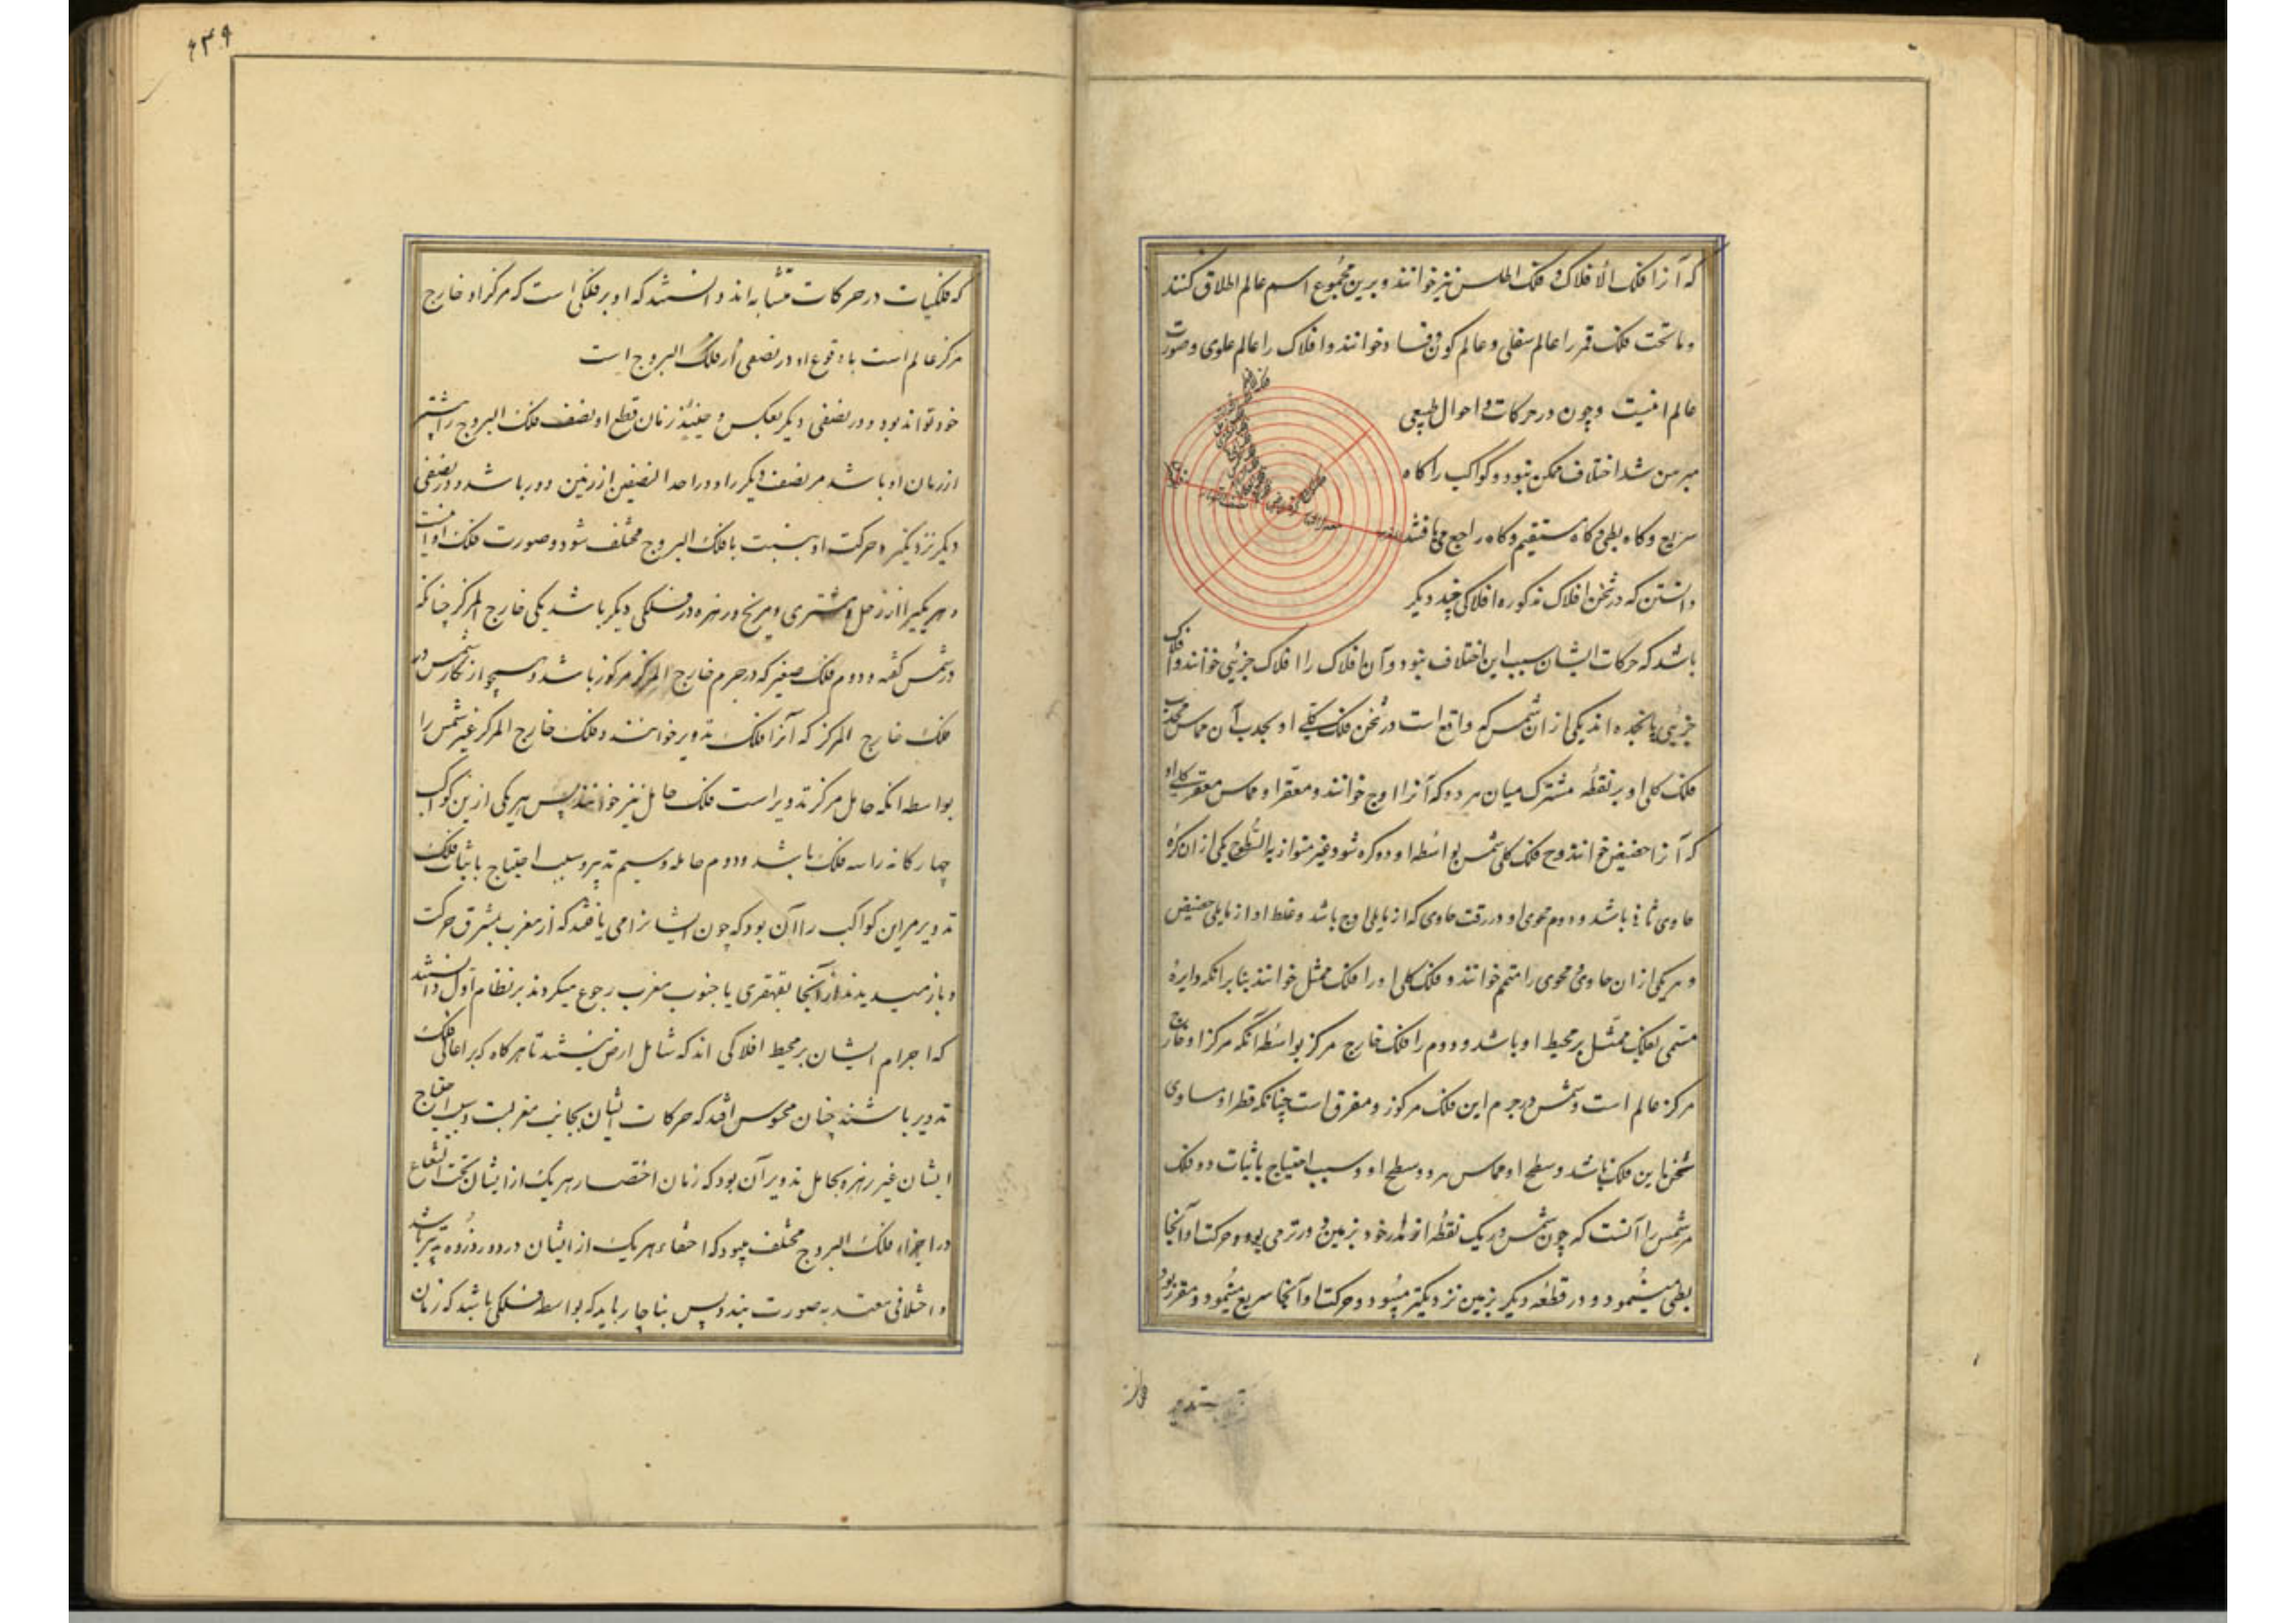 که آنرا فلک الافلاک و فلک اطلس نیز خوانند و برین مجموع اسم عالم اطلاق کنند
و ماتحت فلک قمر را عالم سفلی و عالم کون و فساد خوانند و افلاک را عالم علوی و صورت
عالم اینست و چون در حرکات و احوال طبیعی
مبرهن شد اختلاف ممکن نبود و کواکب را گاه
سریع و گاه بطی و گاه مستقیم و گاه راجع می یافتند
دانستن که در ثخن افلاک مذکوره افلاکی چند دیگر
باشد که حرکات ایشان سبب این اختلاف بود و آن افلاک را افلاک جزئی خوانند و افلاک
جزئی پانجده اند یکی از ان شمس که واقع است در ثخن فلک کلی او بحدب آن مماس محدب
فلک کلی او بر نقطه مشترک میان هر دو که آنرا اوج خوانند و مقعر او مماس مقعر کلی او
که آنرا حضیض خوانند و ح فلک کلی شمس بواسطه او دو کره شود غیر متوازیه السطوح یکی از ان کره
حاوی ثانی باشد و دوم محوی او در رقت حاوی که از یلی اوج باشد و غلظ او از یلی حضیض
و هر یکی از ان حاوی و محوی را متمم خوانند و فلک کلی او را فلک ممثل خوانند بنا بر انکه دایره
مسمی بفلک ممثل بر محیط او باشد و دوم را فلک خارج مرکز بواسطه آنکه مرکز او خارج
مرکز عالم است و شمس در جرم این فلک مرکوز و مغرق است چنانکه قطر او مساوی
ثخن این فلک باشد و سطح او مماس هر دو سطح او و سبب احتیاج باثبات دو فلک
مر شمس را آنست که چون شمس در یک نقطه از مدار خود بزمین دورتر می بود و حرکت او آنجا
بطی مینمود و در قطعه دیگر بزمین نزدیکتر میبود و حرکت او آنجا سریع مینمود و مقرر بود
۶۴۹
که فلکیات در حرکات متشابه اند دانستند که او بر فلکی است که مرکز او خارج
مرکز عالم است با وقوع او در نصفی از فلک البروج است
خود تواند بود و در نصفی دیگر بعکس و حینئذ زمان قطع او نصف فلک البروج را بیشتر
از زمان او باشد مر نصف دیگر را و در احد النصفین از زمین دور باشد و در نصفی
دیگر نزدیکتر و حرکت او بنسبت با فلک البروج مختلف شود و صورت فلک او اینست
و هر یکیرا از زحل و مشتری و مریخ و زهره در فلکی دیگر باشد یکی خارج المرکز چنانکه
در شمس گفته و دوم فلک صغیر که در جرم خارج المرکز مرکوز باشد همچو ارتکاز شمس در
فلک خارج المرکز که آنرا فلک تدویر خوانند و فلک خارج المرکز غیر شمس را
بواسطه انکه حامل مرکز تدویر است فلک حامل نیز خوانند پس هر یکی از ین کواکب
چهارگانه را سه فلک باشد و دوم حامله و سیم تدویر و سبب احتیاج باثبات فلک
تدویر مر این کواکب را آن بود که چون ایشانرا می یافتند که از مغرب بمشرق حرکت
و باز میدیدند از آنجا بقهقری یا جنوب مغرب رجوع میکردند بر نظام اول دانستند
که اجرام ایشان بر محیط افلاکی اند که شامل ارض نیستند تا هر گاه که بر اعالی فلک
تدویر باشند چنان محسوس افتد که حرکات ایشان بجانب مغربست و سبب احتیاج
ایشان غیر زهره بحامل تدویر آن بود که زمان اختصار هر یک از ایشان تحت الشعاع
در اجزاء فلک البروج مختلف میبود که اختفاء هر یک از ایشان در دو روزه
و اختلافی معتد به صورت بندد پس بناچار باید که بواسطه فلکی باشد که زمان